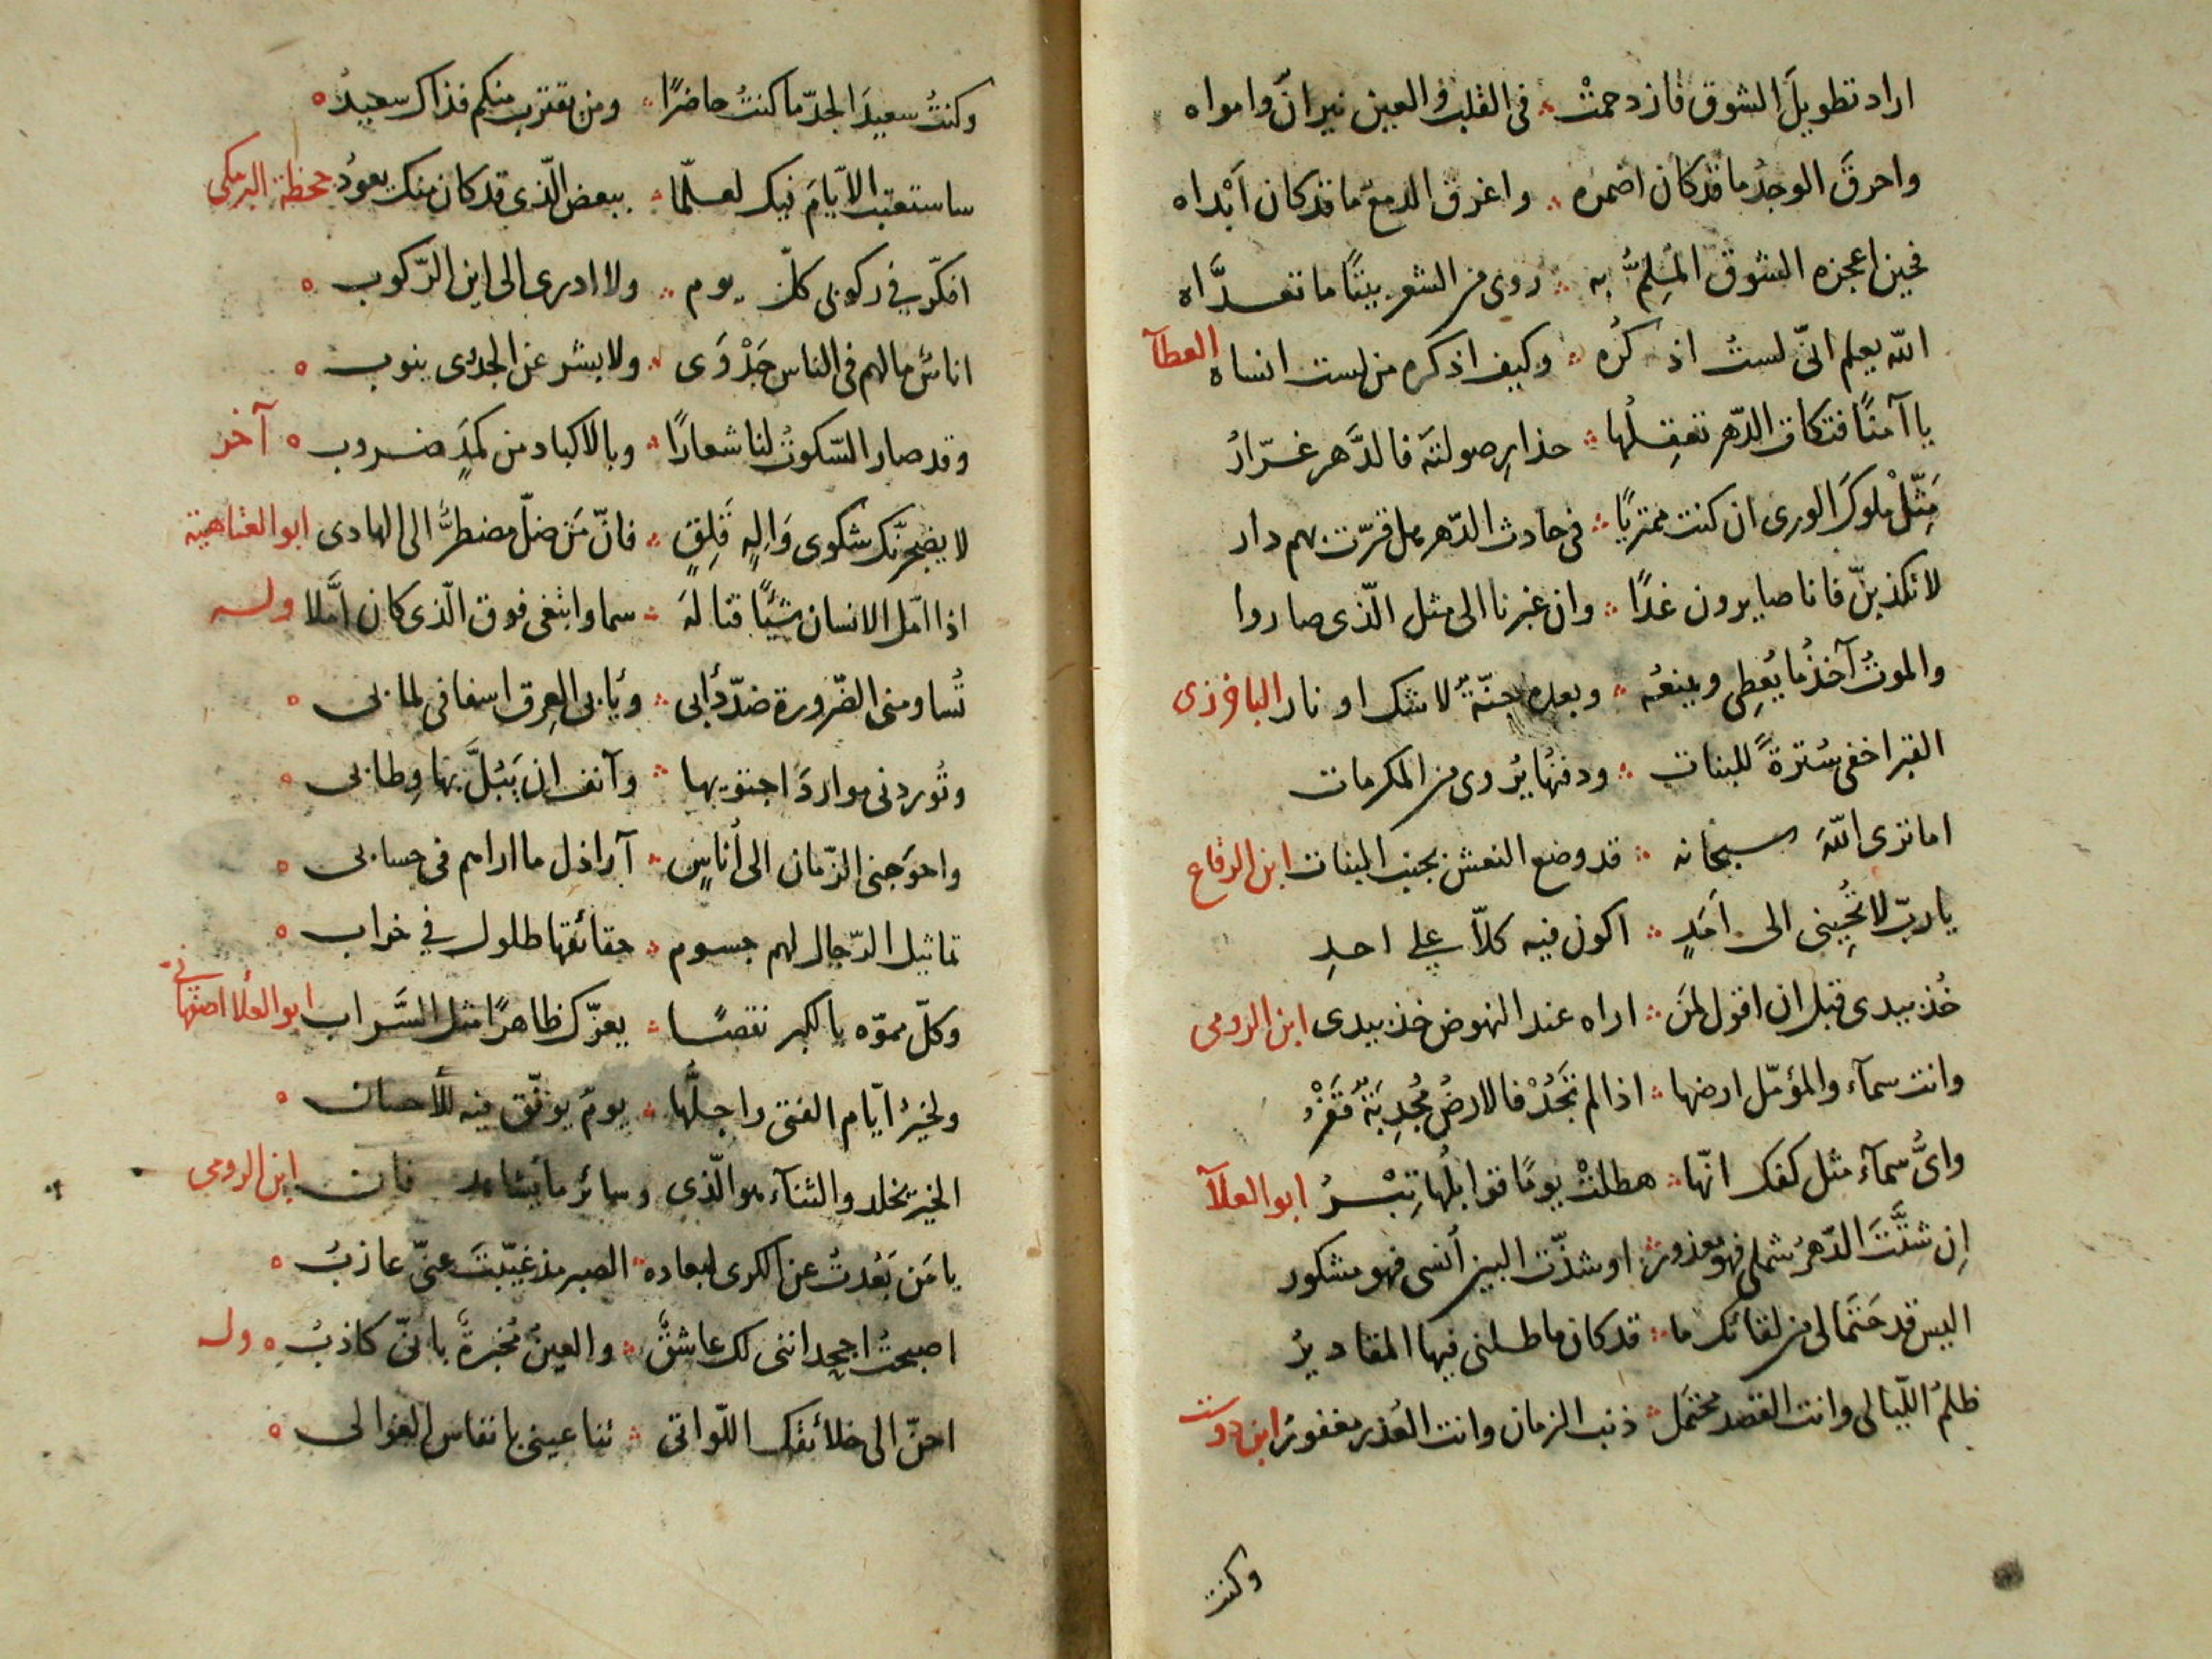 اراد تطويلَ الشوق فازدحمتْ ؞ فى القلب والعين نيرانٌ وامواه
واحرقَ الوجدُ ما قد كان اضمره ؞ واغرق الدمعُ ما قد كان اَبْداه
فحين اعجزه الشوق المُلِمُّ به ؞ روى من الشعر بيتًا ما تعدَّاه
الله يعلم انّى لستُ اذكُره ؞ وكيف اذكره من لست انساه العطآ
يا آمنًا فتكات الدّهر تغفِلُها ؞ حذارِ صولته فالدَّهر غرّارُ
مَثِّلْ ملوكَ الورى ان كنت ممتريًا ؞ فى حادث الدّهر هل قرّت بهم دار
لا تكذبنّ فانا صايرون غدًا ؞ وان غبرنا الى مثل الّذى صاروا
والموتُ آخذُ ما يُعطِى ويمنعُه ؞ وبعده جنّةٌ لا شك او نار الباخرزى
القبر اخفى سُترةً للبنات ؞ ودفنُها يُروى من المكرمات
اما ترى اللهَ سبحانه ؞ قد وضع النعش بجنب البنات ابن الرقاع
يا ربّ لا تُحْيِنى الى اَمَدٍ ؞ اكون فيه كلّا على احدِ
خُذ بيدى قبل ان اقول لمَن ؞ اراه عند النهوض خذ بيدى ابن الرومى
وانت سمآء والمؤمّل ارضها ؞ اذا لم تَجُدْ فالارضُ مُجدِبَةٌ قَفْرُ
واىُّ سمآء مثل كفك انّها ؞ هطلتْ يومًا فوابلُها تِبْرُ ابو العلآ
اِن شتَّتَ الدّهرُ شملى فهو معذورٌ ؞ او شذّت البين اُنسى فهو مشكور
اليس قد حَتَما لى من لقائكم ما ؞ قد كان ماطلنى فيها المقاديرُ
ظلمُ اللّيالى وانت القصد محتمَل ؞ ذنب الزمان وانت العُذر مغفورُ ابن دوست
وكنت
وكنتُ سعيدَ الجدّ ما كنتُ حاضرًا ؞ ومن يقترب منكم فذاك سعيدُ ه
ساستعتب الايّامَ فيك لعلّما ؞ ببعض الّذى قد كان منك يعودُ جحظة البرمكى
افكّر فى ركوبى كلّ يوم ؞ ولا ادرى الى اين الرّكوب ه
اناسٌ ما لهم فى الناس جَدْوَى ؞ ولا بشر عن الجدوى ينوب ه
وقد صار السّكوتُ لنا شعارًا ؞ وبالاكباد من كمَدٍ ضروب ه آخر
لا يضجرنّك شكوى وَالِهٍ قَلِقٍ ؞ فانّ مَن ضلّ مضطرٌّ الى الهادى ابو العتاهية
اذا امّل الانسان شيئًا فنالهَ ؞ سما وابتغى فوق الّذى كان امَّلا وله
تُساومنى الضّرورة ضدّ دأبى ؞ ويأبى العِرق اسفافى لما بى ه
وتُوردنى مواردَ اجتويها ؞ وآنف ان يَبُلَّ بها وِطابى ه
واحوَجنى الزّمان الى اُناسٍ ؞ آراذل ما اراهم فى حسابى ه
تماثيل الرّجال لهم جسوم ؞ حقائقها طلول فى خراب ه
وكلّ مموّه بالكبر نقصًا ؞ يغرّك ظاهرًا مثل السَّراب ابو العلا اصفهانى
ولخيرُ ايّام الفتى واجلُّها ؞ يومٌ يوفّق فيه للأحسان ه
الخير يخلد والثنآء هو الّذى وسائر ما يشاهد فان ابن الرومى
يا مَن بَعُدتُ عن الكرى لبعاده ؞ الصبر مذ غيّبتَ عنّى عازبُ ه
اصبحتُ اجحد اننى لك عاشقٌ ؞ والعينُ مُخبرةٌ بانّى كاذبُ ه وله
احنّ الى خلائقك اللّواتى ؞ تناغينى بانفاس الغوالى ه